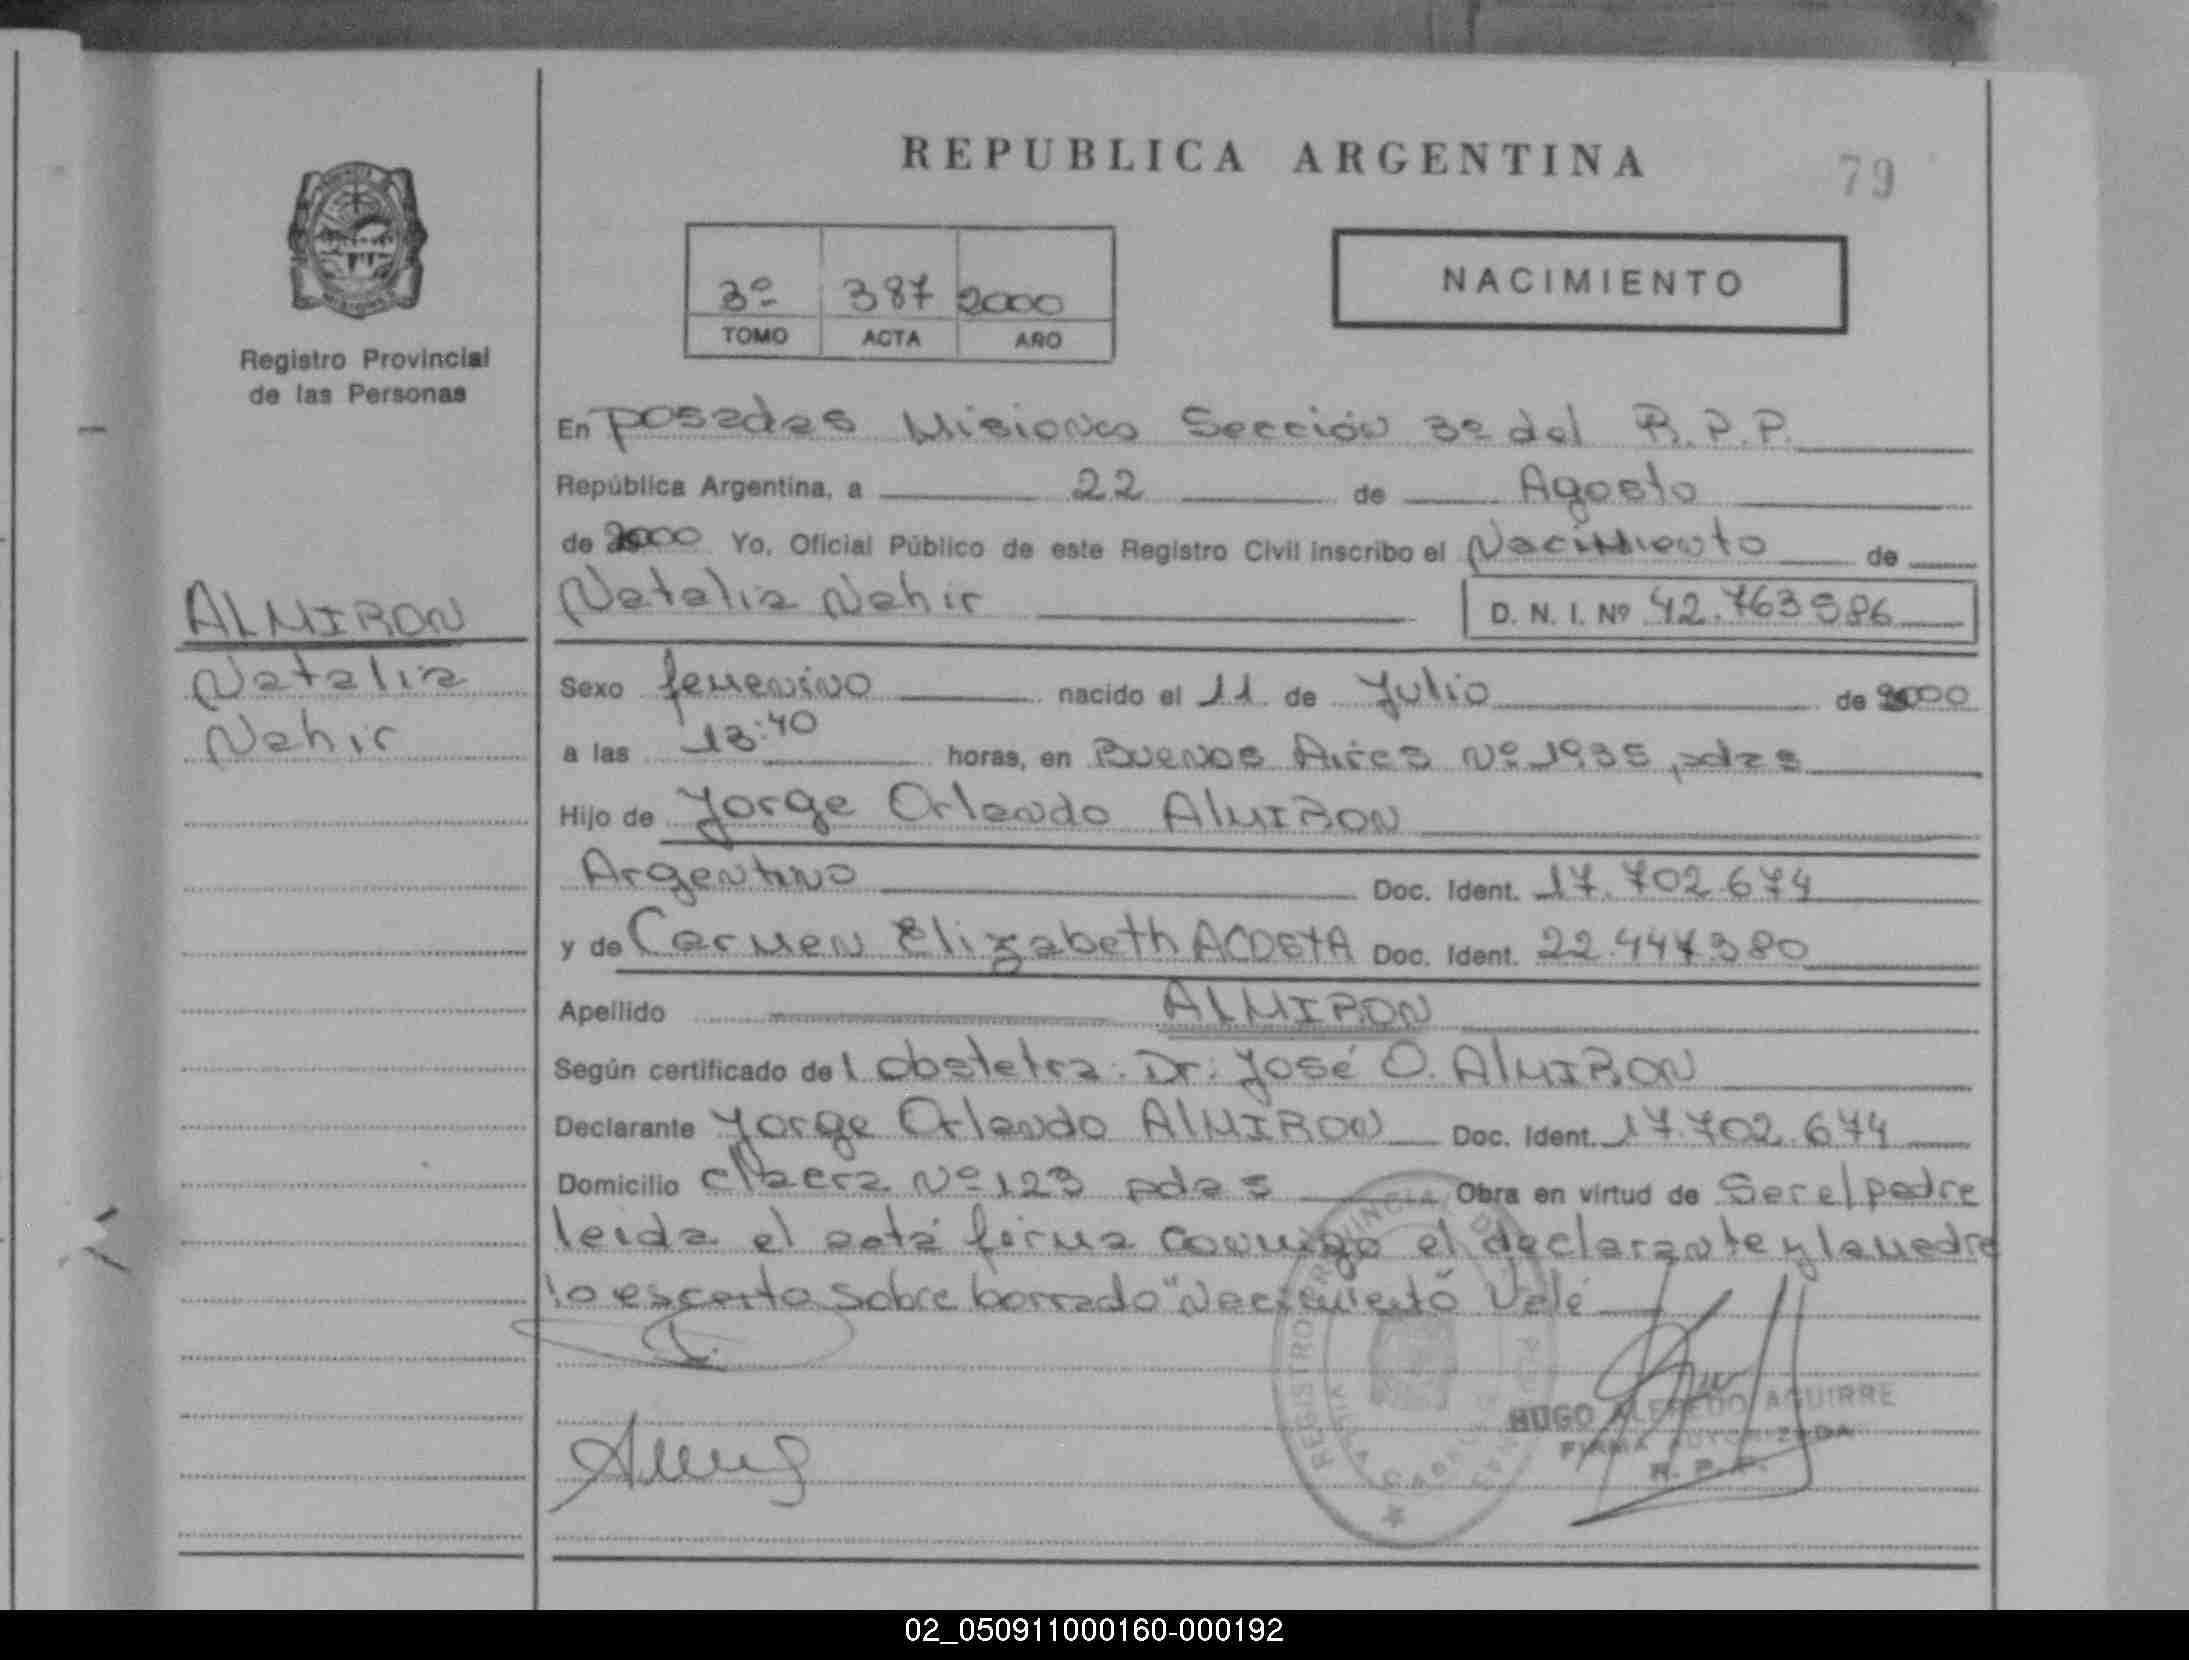 REPUBLICA ARGENTINA
79
Registro Provincial
de las Personas
3º 387 2000
TOMO ACTA AÑO
NACIMIENTO
En Posadas Misiones Sección 3º del R.P.P.
República Argentina, a 22 de Agosto
de 2000 Yo, Oficial Público de este Registro Civil inscribo el Nacimiento de
ALMIRON
Natalia
Nahir
Natalia Nahir D. N. I. Nº 42.763986
Sexo femenino nacido el 11 de Julio de 2000
a las 13:40 horas, en Buenos Aires Nº 1935, pdas
Hijo de Jorge Orlando AlMIRON
Argentino Doc. Ident. 17.702.674
y de Carmen Elizabeth ACOSTA Doc. Ident. 22.447.380
Apellido ALMIRON
Según certificado del Obstetra: Dr: José O. AlMIRON
Declarante Jorge Orlando AlMIRON Doc. Ident. 17.702.674
Domicilio Nº 123 pdas Obra en virtud de Ser el padre
leida el acta firma conmigo el declarante y la madre
lo escrito sobre borrado "Nacimiento" Vale
HUGO ALFREDO AGUIRRE
FIRMA AUTORIZADA
R. P. P.
02_050911000160-000192